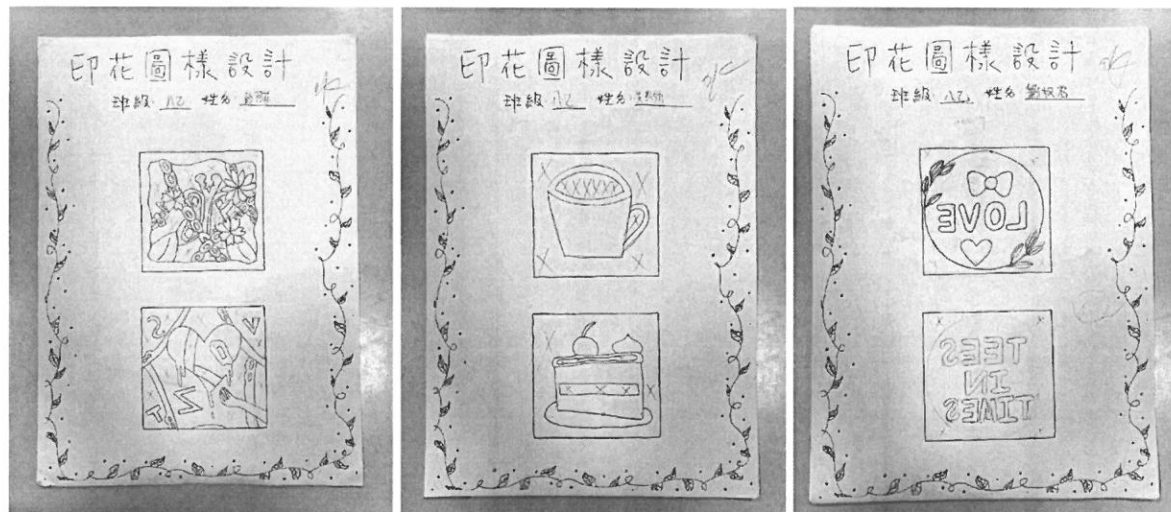 印花圖樣設計
班級: 八乙 姓名:
印花圖樣設計
班級: 八乙 姓名:
印花圖樣設計
班級: 八乙 姓名:
LOVE
TEES
IN
TIMES